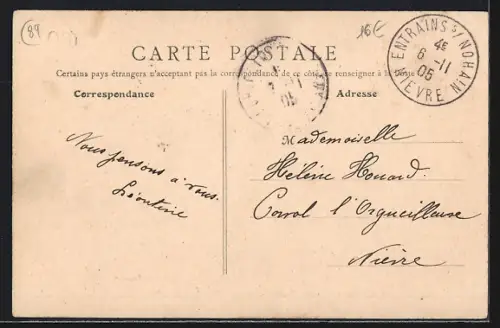 89
16€
CARTE POSTALE
Certains pays étrangers n'acceptant pas la correspondance de ce côté, se renseigner à la Poste
Correspondance
Adresse
ENTRAINS S/ NOHAIN
4E
6 -11
05
NIEVRE
05
Nous pensons à vous.
Léontine
Mademoiselle
Hélène Houard.
Corvol l'Orgueilleuse
Nièvre